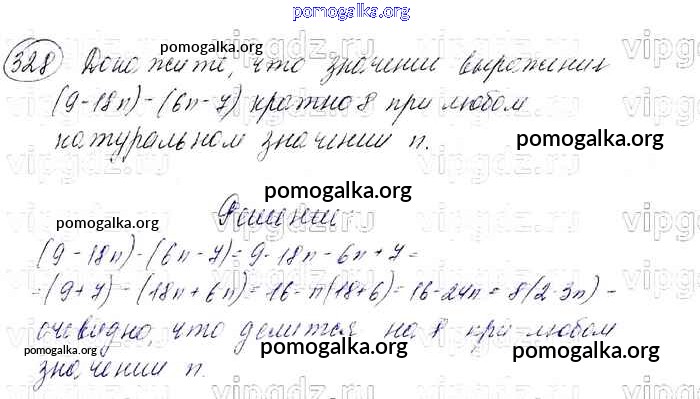 pomogalka.org
328 Докажите, что значение выражения
(9-18n)-(6n-7) кратно 8 при любом
натуральном значении n.
Решение:
(9-18n)-(6n-7)=9-18n-6n+7=
=(9+7)-(18n+6n)=16-n(18+6)=16-24n=8(2-3n)-
очевидно, что делится на 8 при любом
значении n.
pomogalka.org
pomogalka.org
pomogalka.org
pomogalka.org
pomogalka.org
pomogalka.org
pomogalka.org
pomogalka.org
vipgdz.ru